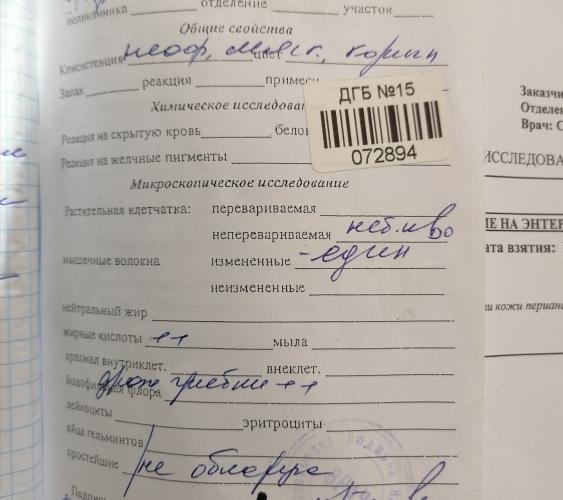 поликлиника отделение участок
Общие свойства
Консистенция неоф, мягк. цвет коричн
Запах реакция примесь
Химическое исследован
Реакция на скрытую кровь бело
Реакция на желчные пигменты
Микроскопическое исследование
Растительная клетчатка: перевариваемая
неперевариваемая неб. к-во
мышечные волокна измененные - един
неизмененные
нейтральный жир
жирные кислоты ++ мыла
крахмал внутриклет. внеклет.
Йодофильная флора дрож грибки ++
лейкоциты эритроциты
яйца гельминтов
простейшие не обнаруж
Подпись
ДГБ №15
072894
Заказчи
Отделен
Врач: С
ИССЛЕДОВА
ИЕ НА ЭНТЕР
ата взятия:
ки кожи периан